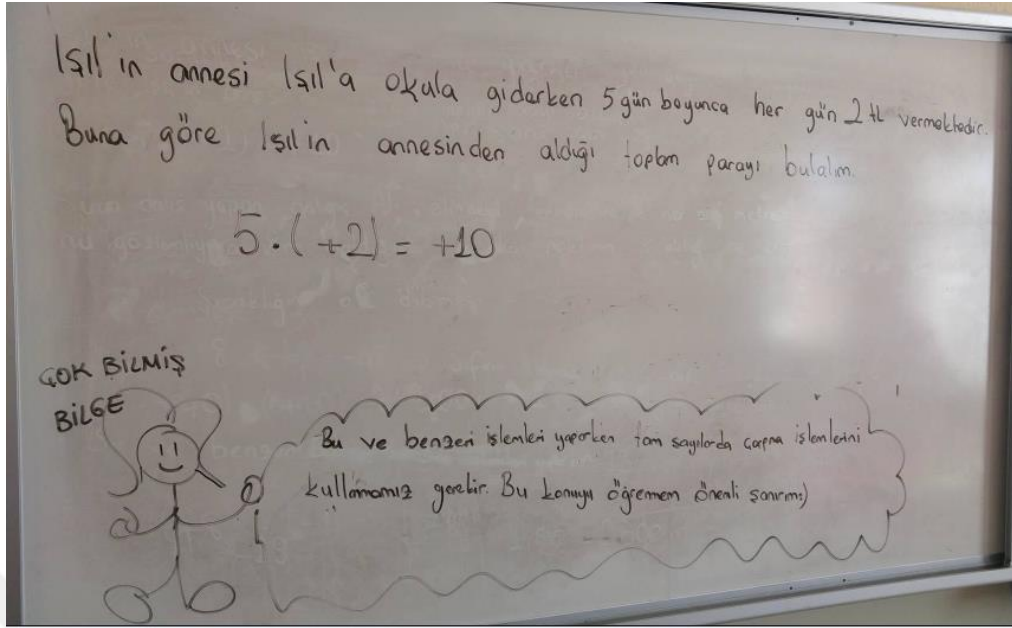 Işıl'in annesi Işıl'a okula giderken 5 gün boyunca her gün 2 tl vermektedir.
Buna göre Işıl'in annesinden aldığı toplam parayı bulalım.
5.(+2) = +10
ÇOK BİLMİŞ
BİLGE
Bu ve benzeri işlemleri yaparken tam sayılarda çarpma işlemlerini
kullanmamız gerekir. Bu konuyu öğremem önemli sanırım:)